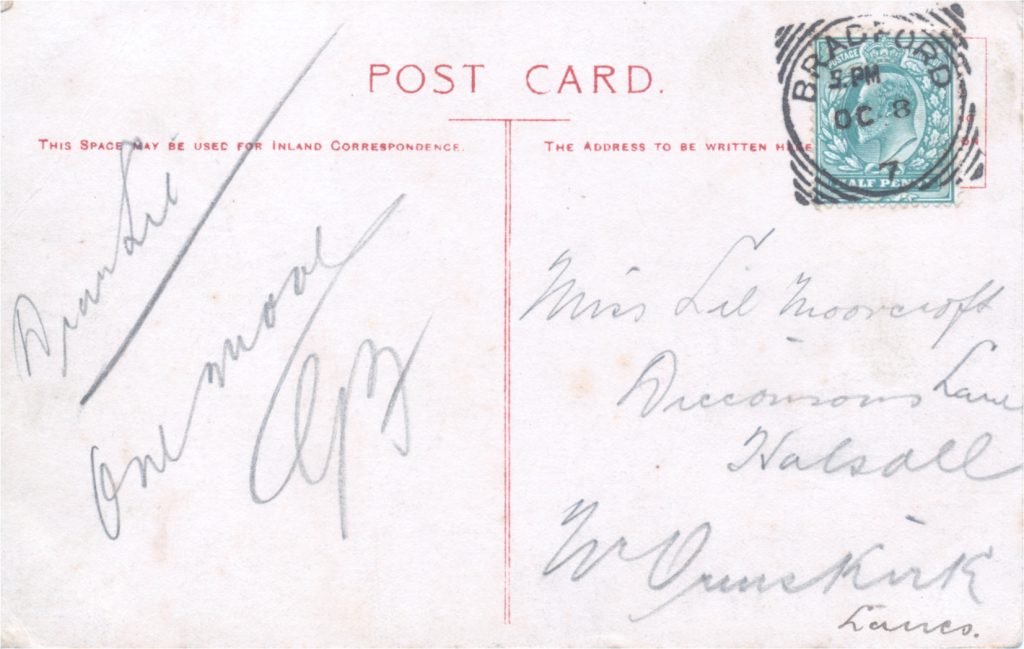 POST CARD.
THIS SPACE MAY BE USED FOR INLAND CORRESPONDENCE.
THE ADDRESS TO BE WRITTEN HERE
BRADFORD
PM
OC 8
7
POSTAGE
HALF PENNY
Dear Lil
One more
Miss Lil Moorcroft
Dicconsons Lane
Halsall
Nr Ormskirk
Lancs.